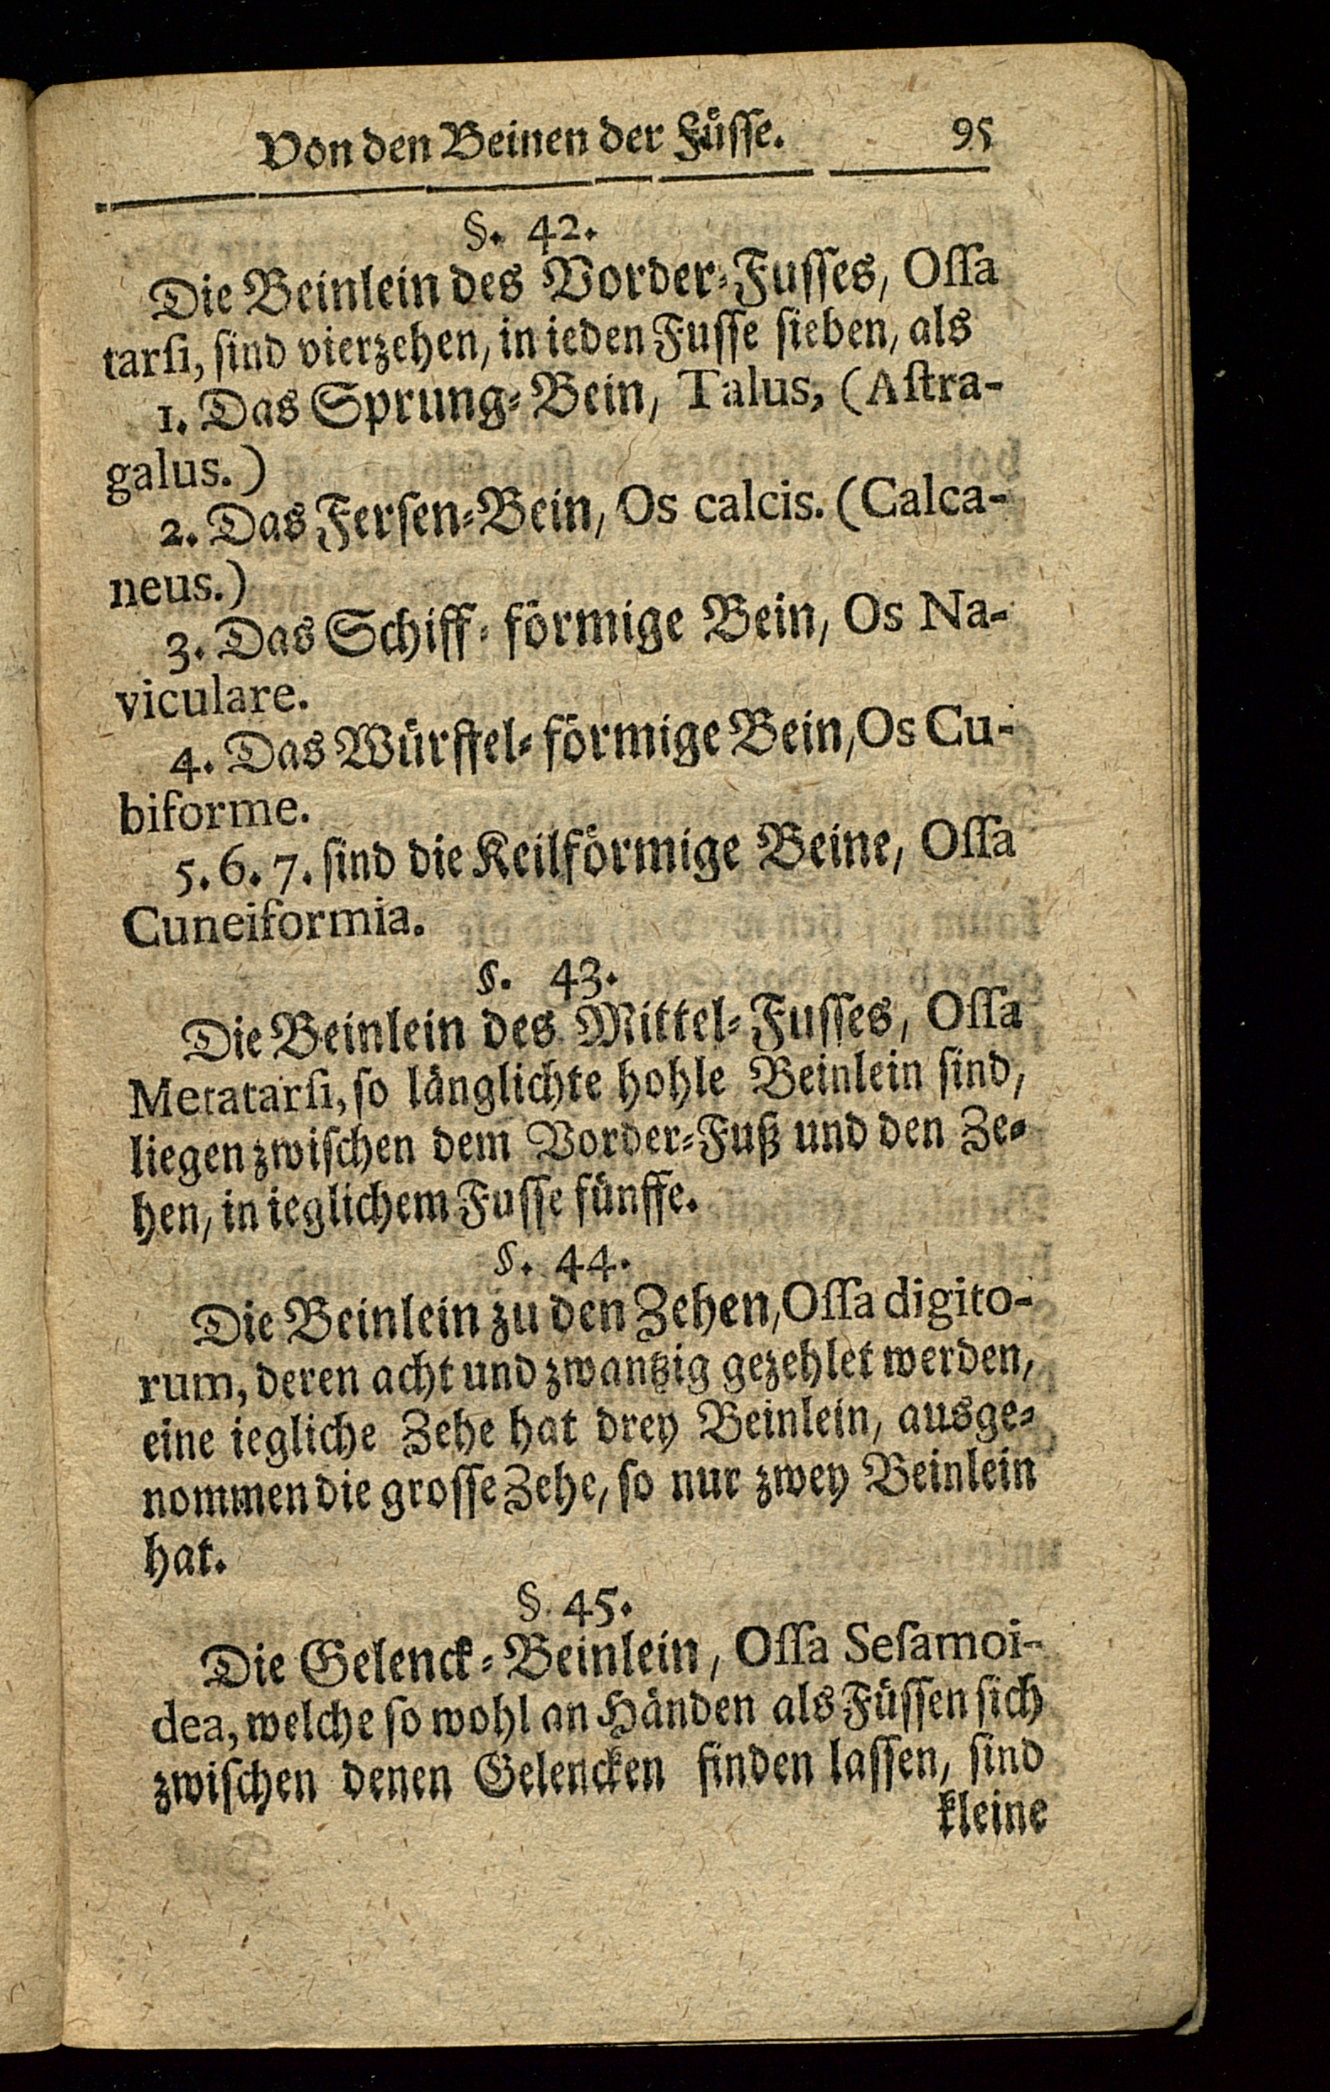 Von den Beinen der Füsse. 95
§. 42.
Die Beinlein des Vorder-Fusses, Ossa
tarsi, sind vierzehen, in ieden Fusse sieben, als
1. Das Sprung-Bein, Talus, (Astra-
galus.)
2. Das Fersen-Bein, Os calcis. (Calca-
neus.)
3. Das Schiff-förmige Bein, Os Na-
viculare.
4. Das Würffel-förmige Bein, Os Cu-
biforme.
5. 6. 7. sind die Keilförmige Beine, Ossa
Cuneiformia.
§. 43.
Die Beinlein des Mittel-Fusses, Ossa
Metatarsi, so länglichte hohle Beinlein sind,
liegen zwischen dem Vorder-Fuß und den Ze-
hen, in ieglichem Fusse fünffe.
§. 44.
Die Beinlein zu den Zehen, Ossa digito-
rum, deren acht und zwantzig gezehlet werden,
eine iegliche Zehe hat drey Beinlein, ausge-
nommen die grosse Zehe, so nur zwey Beinlein
hat.
§. 45.
Die Gelenck-Beinlein, Ossa Sesamoi-
dea, welche so wohl an Händen als Füssen sich
zwischen denen Gelencken finden lassen, sind
kleine